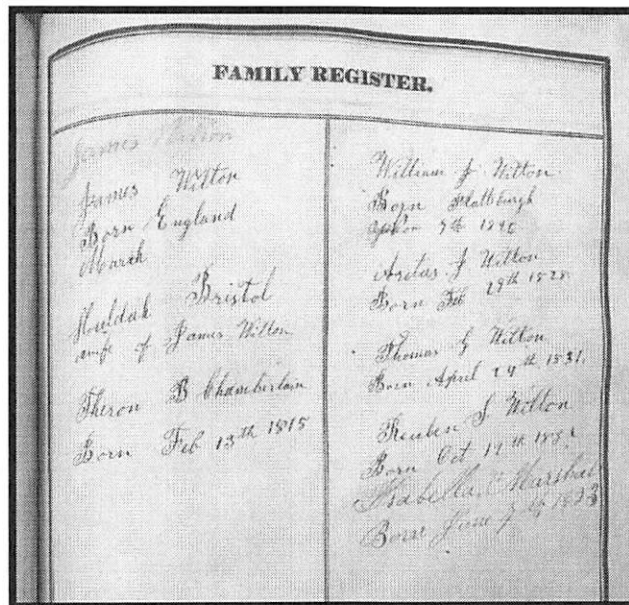 FAMILY REGISTER.
James Wilton
James Wilton
Born England
March
Huldah Bristol
wife of James Wilton
Theron B Chamberlain
Born Feb 13th 1815
William J Wilton
Born
5th
J Wilton
Born Feb 19th 1828
Thomas G Wilton
Born April 14th 1831
Reuben S Wilton
Born Oct
Isabella Marshal
Born June